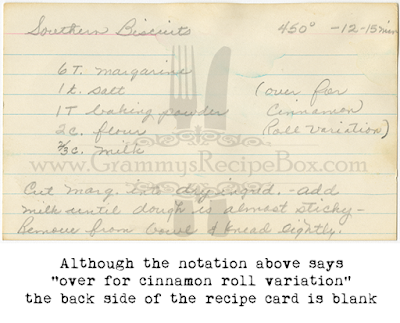 Southern Biscuits 450° -12-15 min
6 T. margarine
1 t. salt (over for
1 T baking powder Cinnamon
2 c. flour Roll Variation)
2/3 c. milk
www.GrannysRecipeBox.com
Cut marg. into dry ingred. - add
milk until dough is almost sticky -
Remove from bowl & knead lightly.
Although the notation above says
"over for cinnamon roll variation"
the back side of the recipe card is blank